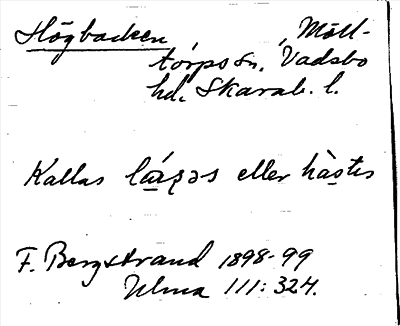 Högbacken, Möll-
torps sn, Vadsbo
hd, Skarab. l.
Kallas eller
F. Bergstrand 1898-99
Ulma 111:324.